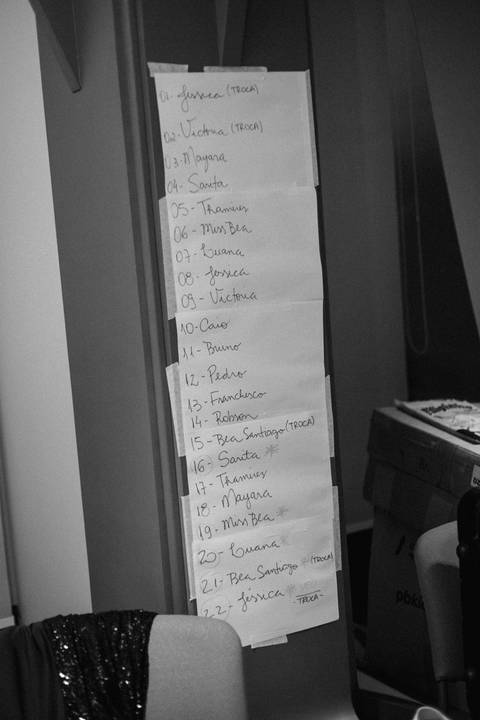 01- Jessica (TROCA)
02- Victoria (TROCA)
03- Mayara
04- Sarita
05- Thamires
06- Miss Bea
07- Luana
08- Jessica
09- Victoria
10- Caio
11- Bruno
12- Pedro
13- Franchesco
14- Robson
15- Bea Santiago (TROCA)
16- Sarita *
17- Thamires
18- Mayara
19- Miss Bea *
20- Luana *
21- Bea Santiago * (TROCA)
22- Jéssica *
-TROCA-